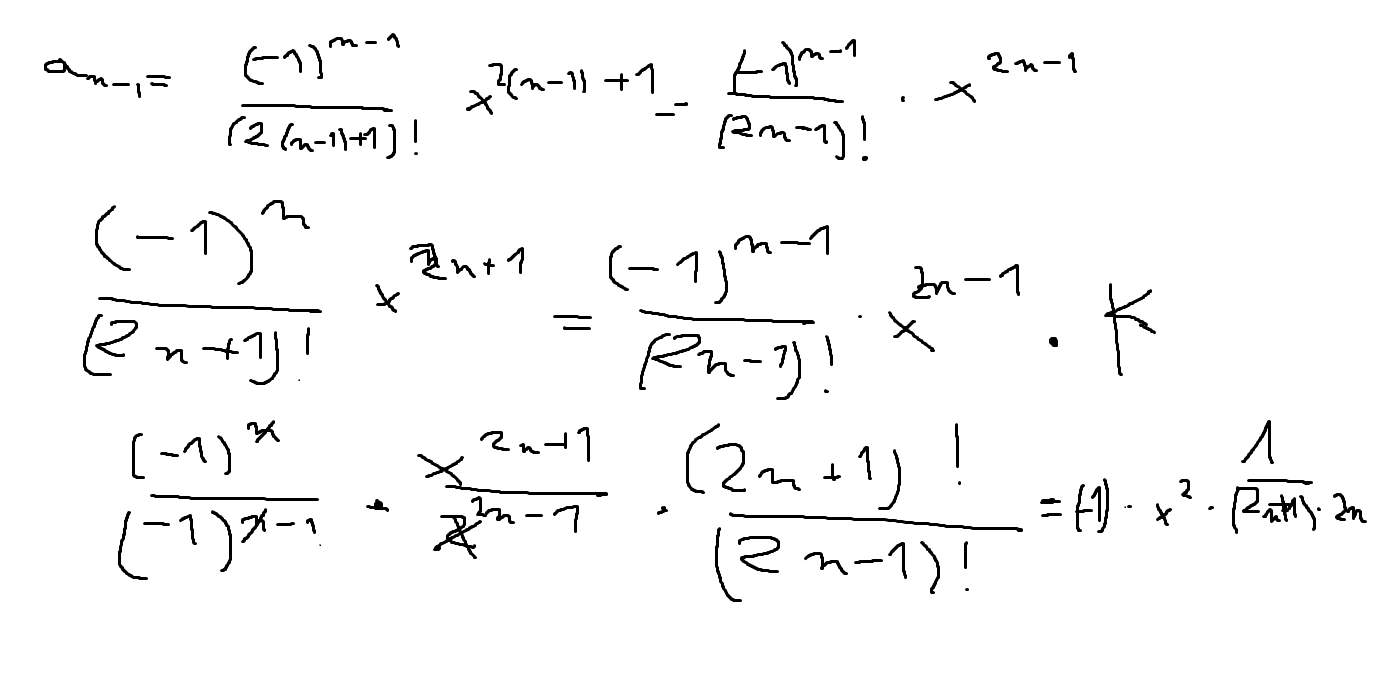 a_{n-1} = \frac{(-1)^{n-1}}{(2(n-1)+1)!} x^{2(n-1)+1} = \frac{(-1)^{n-1}}{(2n-1)!} \cdot x^{2n-1}
\frac{(-1)^n}{(2n+1)!} x^{2n+1} = \frac{(-1)^{n-1}}{(2n-1)!} \cdot x^{2n-1} \cdot K
\frac{(-1)^n}{(-1)^{n-1}} \cdot \frac{x^{2n+1}}{x^{2n-1}} \cdot \frac{(2n+1)!}{(2n-1)!} = (-1) \cdot x^2 \cdot \frac{1}{(2n+1) \cdot 2n}